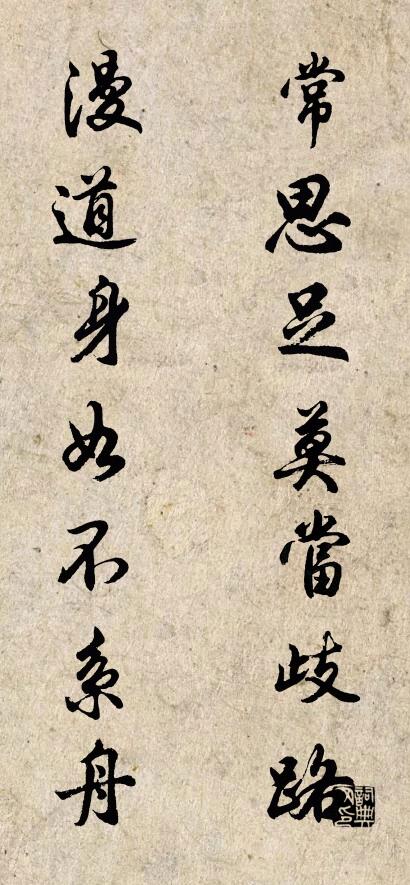 常思足莫當歧路
漫道身如不系舟